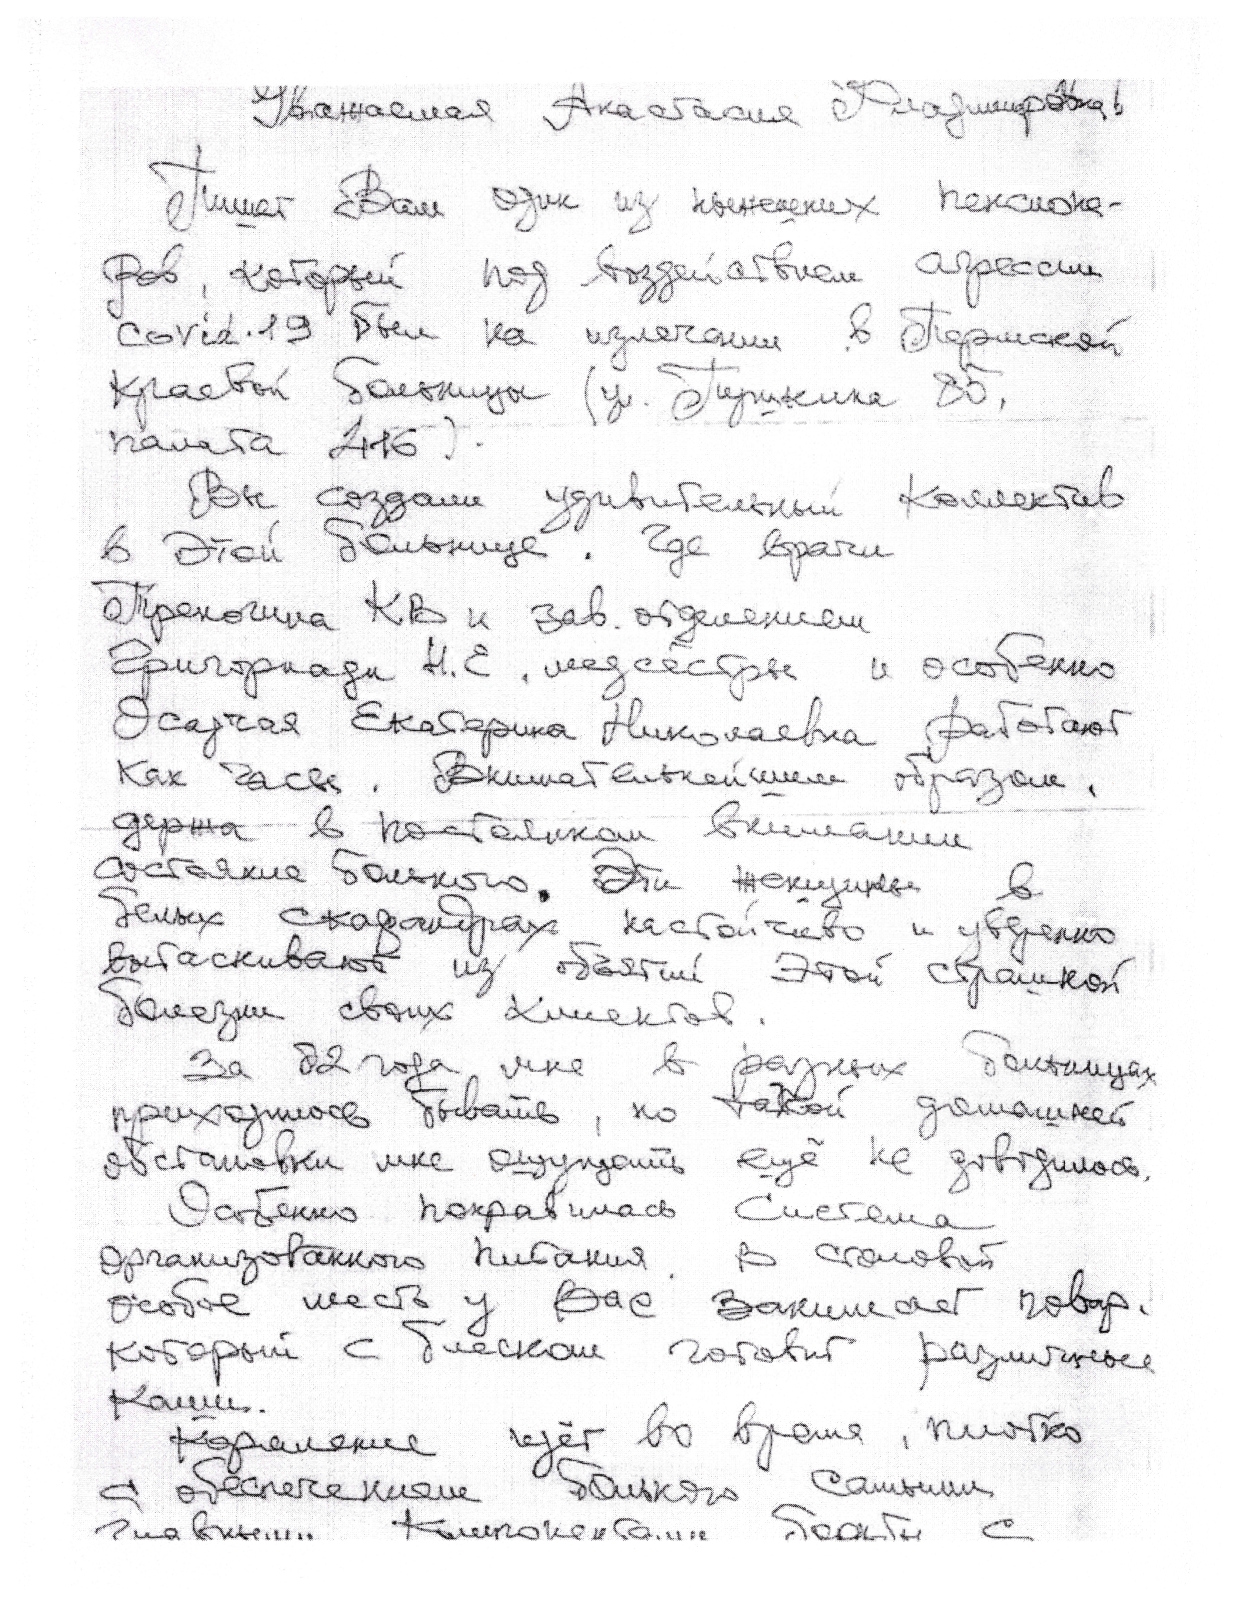 Уважаемая Анастасия Владимировна!
Пишет Вам один из нынешних пенсионе-
ров, который под воздействием агрессии
Covid-19 был на излечении в Пермской
краевой больницы (ул. Пушкина 85,
палата 416).
Вы создали удивительный коллектив
в этой больнице. Где врачи
КВ и зав. отделением
Н.Е, медсёстры и особенно
Осадчая Екатерина Николаевна работают
как часы. Внимательнейшим образом,
держа в постоянном внимании
состояние больного. Эти женщины в
белых скафандрах настойчиво и уверенно
вытаскивают из объятий этой страшной
болезни своих клиентов.
За 82 года мне в разных больницах
приходилось бывать, но такой домашней
обстановки мне ощущать ещё не доводилось.
Особенно понравилась система
организованного питания. В столовой
особое место у Вас занимает повар,
который с блеском готовит различные
каши.
Кормление идёт во время, плотно
с обеспечением больного самыми
главными компонентами борьбы с